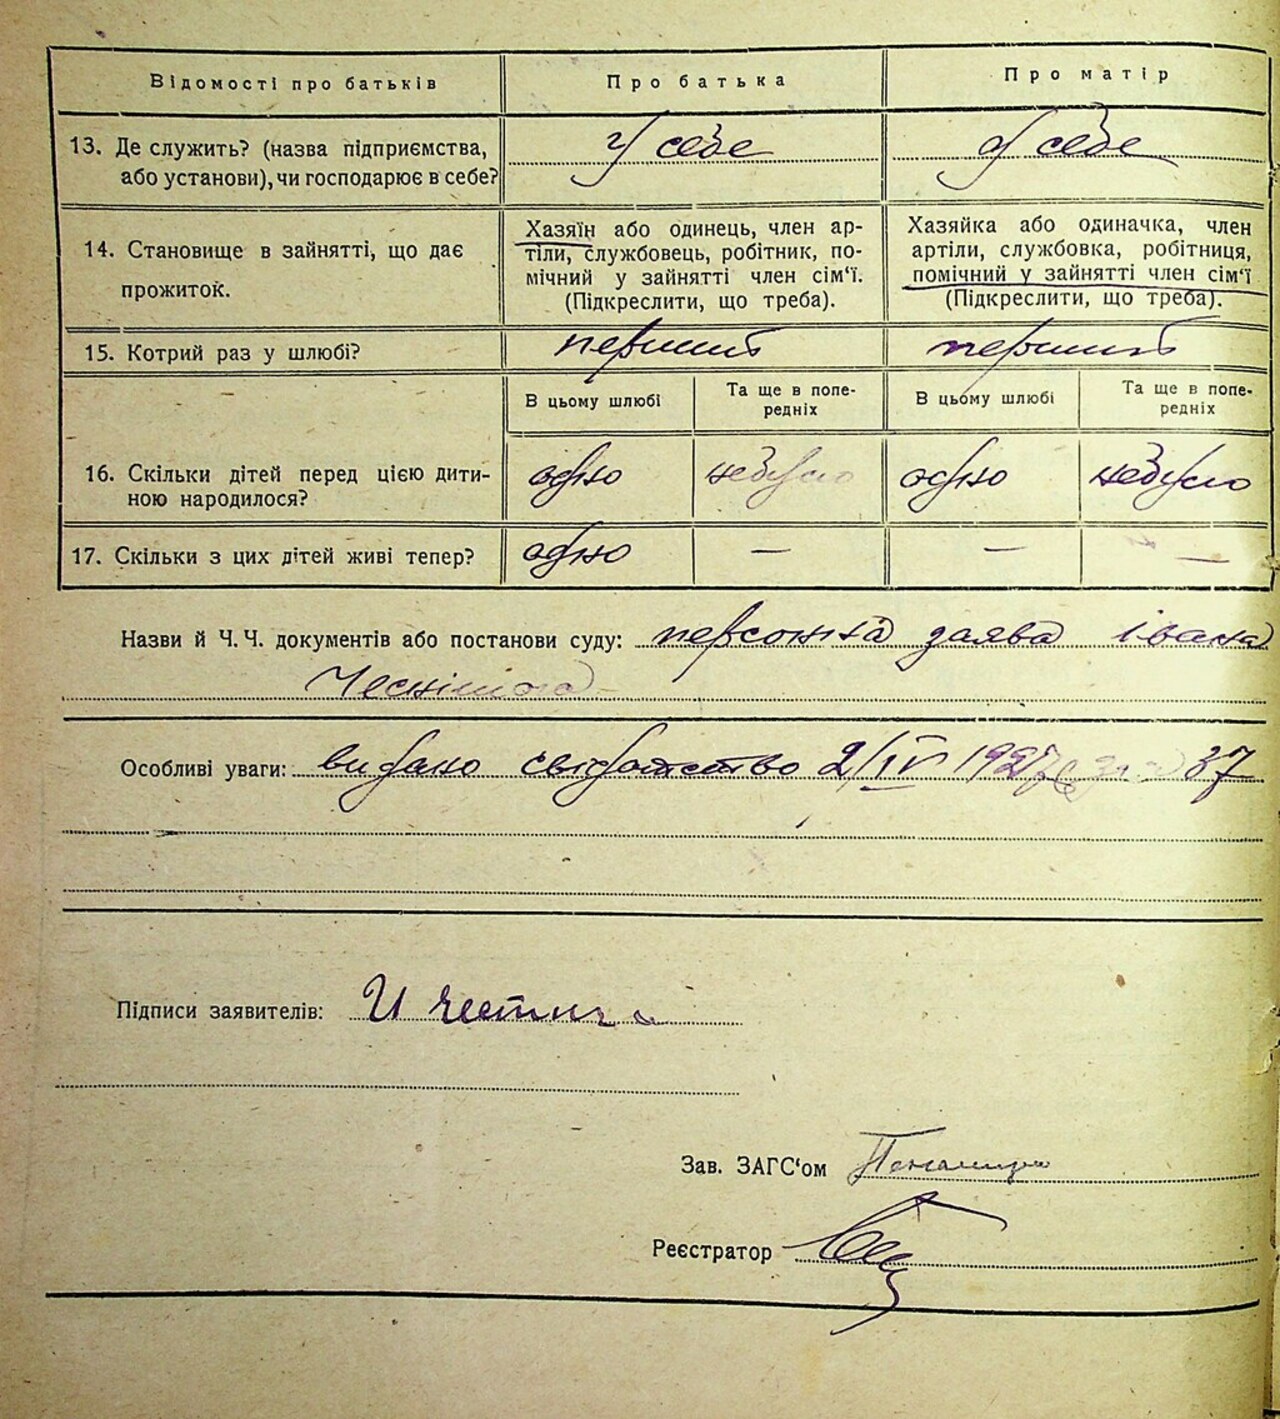 Відомості про батьків Про батька Про матір
13. Де служить? (назва підприємства, у себе у себе
або установи), чи господарює в себе?
14. Становище в зайнятті, що дає
прожиток.
Хазяїн або одинець, член ар-
тіли, службовець, робітник, по-
мічний у зайнятті член сім'ї.
(Підкреслити, що треба).
Хазяйка або одиначка, член
артіли, службовка, робітниця,
помічний у зайнятті член сім'ї
(Підкреслити, що треба).
15. Котрий раз у шлюбі? перший перший
В цьому шлюбі Та ще в попе-
редніх В цьому шлюбі Та ще в попе-
редніх
16. Скільки дітей перед цією дити- одно небуло одно небуло
ною народилося?
17. Скільки з цих дітей живі тепер? одно — — —
Назви й Ч. Ч. документів або постанови суду: персонна заява Івана
Особливі уваги: видано свідотство 2/IV 1927 37
Підписи заявителів: И
Зав. ЗАГС'ом
Реєстратор